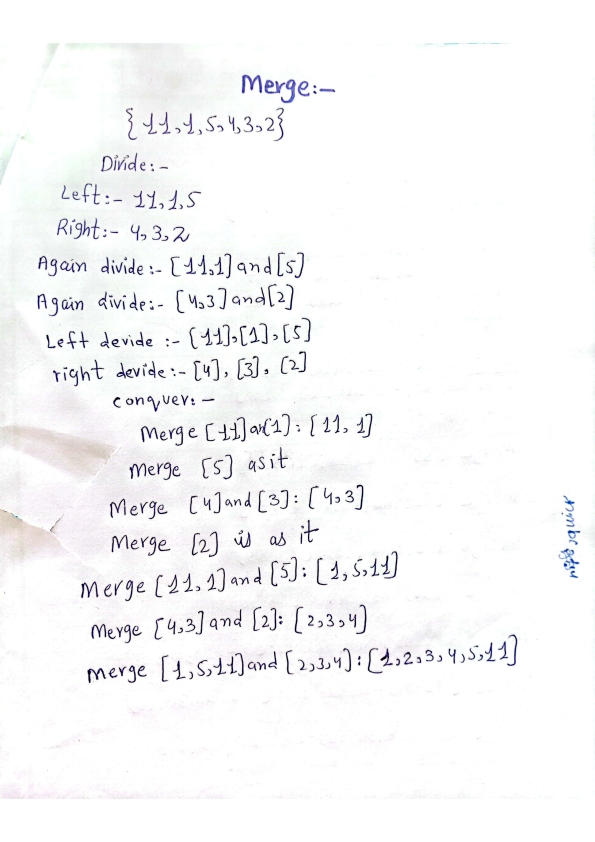 Merge:-
{11,1,5,4,3,2}
Divide:-
Left:- 11,1,5
Right:- 4,3,2
Again divide:- [11,1] and [5]
Again divide:- [4,3] and [2]
Left devide :- [11],[1],[5]
right devide:- [4], [3], [2]
conquer:-
Merge [11] an[1]: [11, 1]
Merge [5] as it
Merge [4] and [3]: [4,3]
Merge [2] is as it
Merge [11,1] and [5]: [1,5,11]
Merge [4,3] and [2]: [2,3,4]
Merge [1,5,11] and [2,3,4]: [1,2,3,4,5,11]